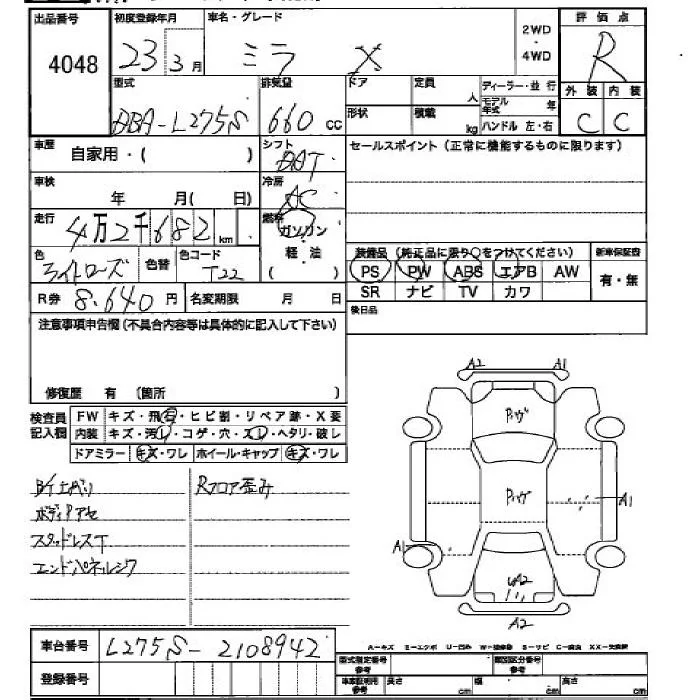 出品番号 初度登録年月 車名・グレード 2WD 評価点
4048 23年3月 ミラ X 4WD R
型式 排気量 ドア 定員 ディーラー・並行 外装 内装
DBA-L275S 660 cc 形状 積載 人 kg モデル年式 年 ハンドル 左・右 C C
車歴 自家用・( ) シフト DAT セールスポイント(正常に機能するものに限ります)
車検 年 月( 日) 冷房 AC
走行 4万2千682 km 燃料 ガソリン
色 ライトローズ 色替 色コード T22 軽・油 ( ) 装備品(純正品に限り○をつけてください) 新車保証書
PS PW ABS エアB AW 有・無
R券 8.640円 名変期限 月 日 SR ナビ TV カワ
注意事項申告欄(不具合内容等は具体的に記入して下さい) 後日品
修復歴 有 (箇所 )
検査員記入欄 FW キズ・飛石・ヒビ割・リペア跡・X要
内装 キズ・汚レ・コゲ・穴・スレ・ヘタリ・破レ
ドアミラー キズ・ワレ ホイール・キャップ キズ・ワレ
A2 A1
Rフロア歪み
ボディサビ
スタッドレスT
エンドパネルシワ
A1
A1
A2
車台番号 L275S-2108942
A-キズ E-エクボ U-凹み
登録番号 型式指定番号 参考 類別区分番号 参考
車庫証明用 参考 長さ cm 幅 cm 高さ cm